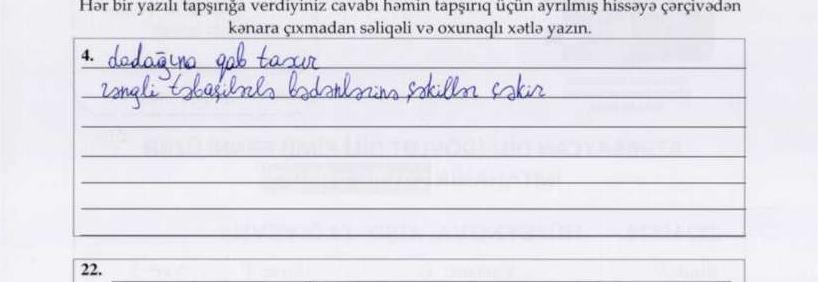 Hər bir yazılı tapşırığa verdiyiniz cavabı həmin tapşırıq üçün ayrılmış hissəyə çərçivədən
kənara çıxmadan səliqəli və oxunaqlı xətlə yazın.
4. dodağına qab taxır
rəngli təbaşirlərlə bədənlərinə şəkillər çəkir
22.